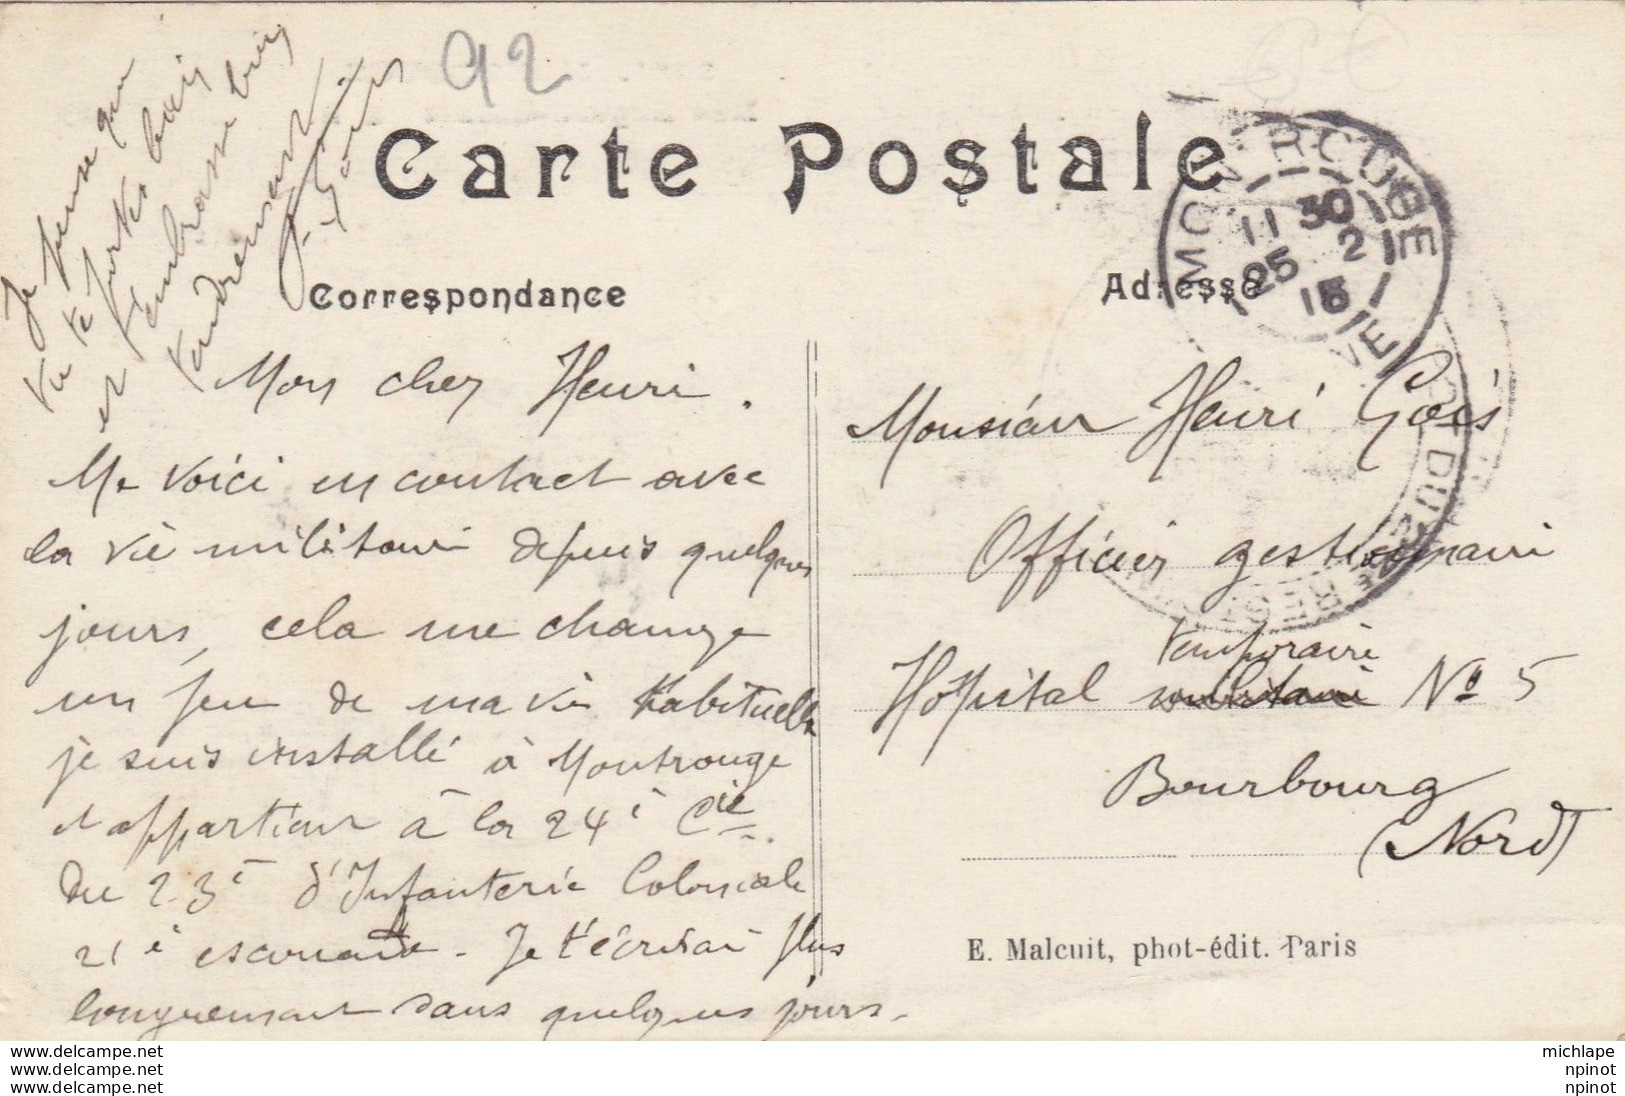 92
Carte Postale
Correspondance
Adresse
MONTROUGE
11 30
25 2
15
Mon cher Henri.
Me voici en contact avec
la vie militaire depuis quelques
jours, cela me change
un peu de ma vie habituelle
je suis installé à Montrouge
et appartient à la 24è Cie
du 23è d'Infanterie Coloniale
21è escouade - Je t'écrirai plus
longuement dans quelques jours.
Je pense que
tu te portes bien
et t'embrasse bien
tendrement
Monsieur Henri
Officier gestionnaire
temporaire
Hôpital militaire No 5
Bourbourg
(Nord)
E. Malcuit, phot-édit. Paris
www.delcampe.net
www.delcampe.net
www.delcampe.net
michlape
npinot
npinot